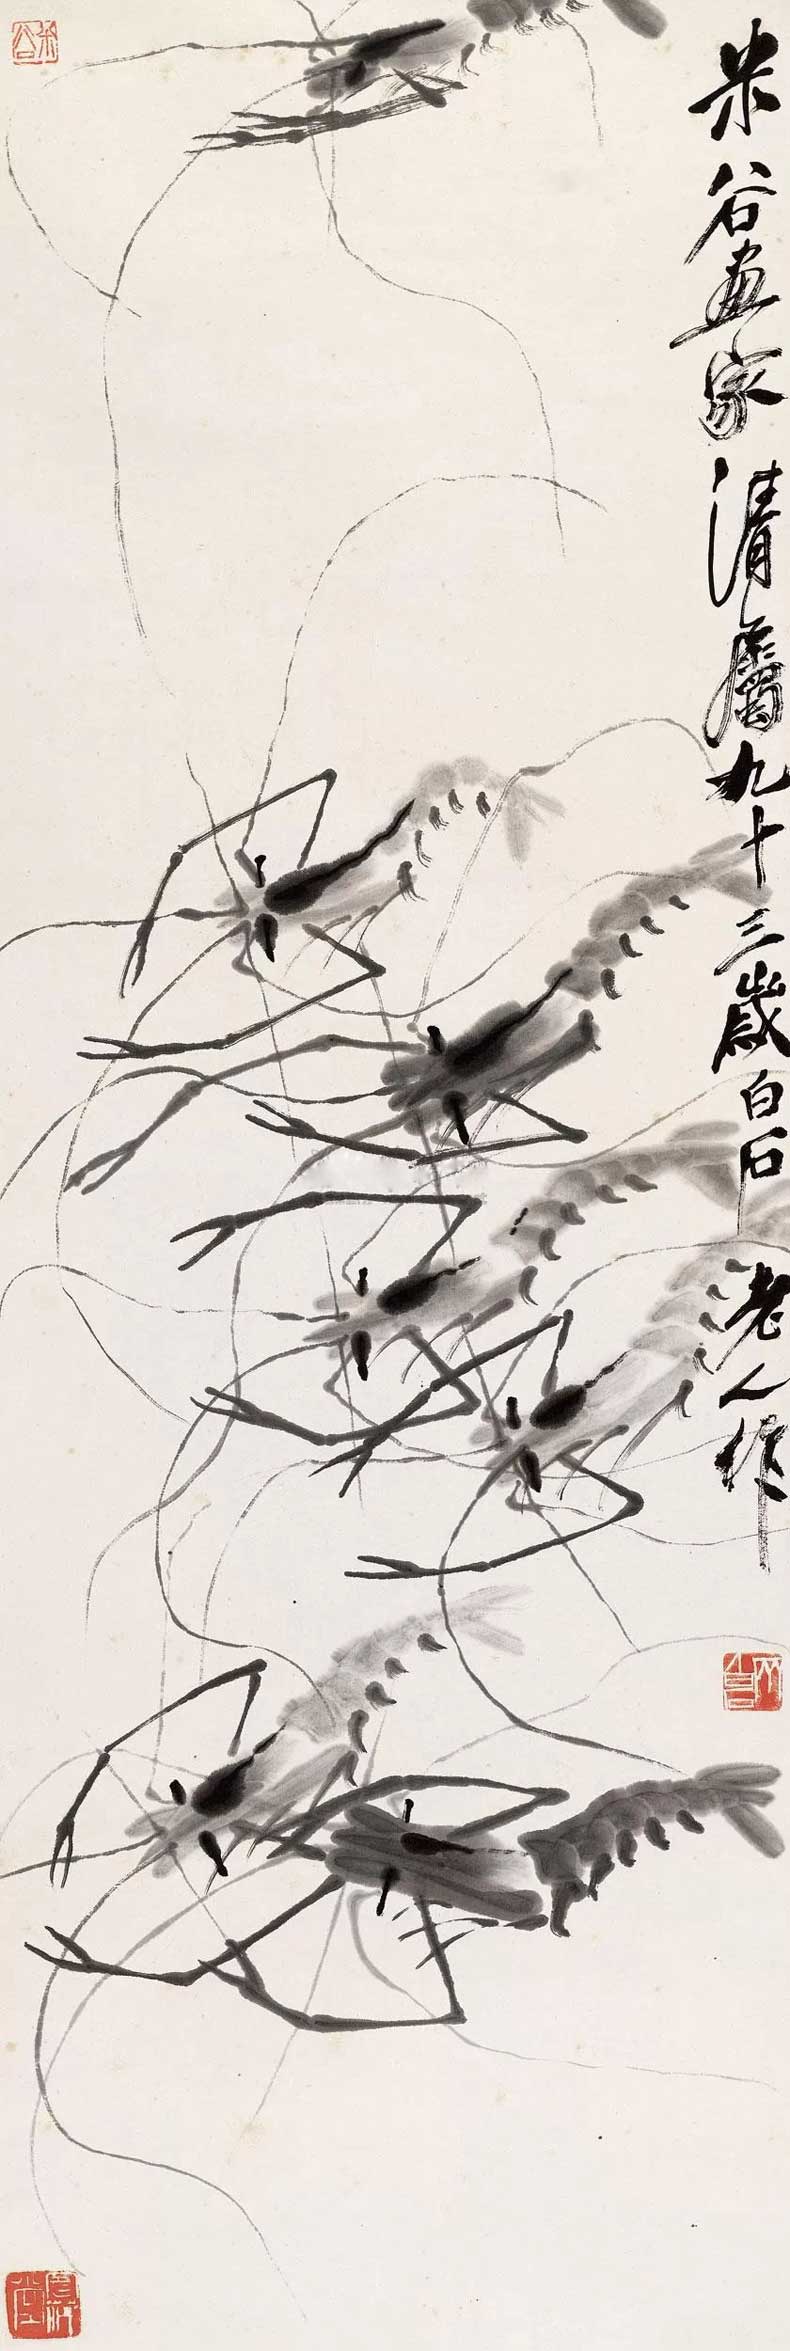 米谷畫家清屬九十三歲白石老人作
米谷